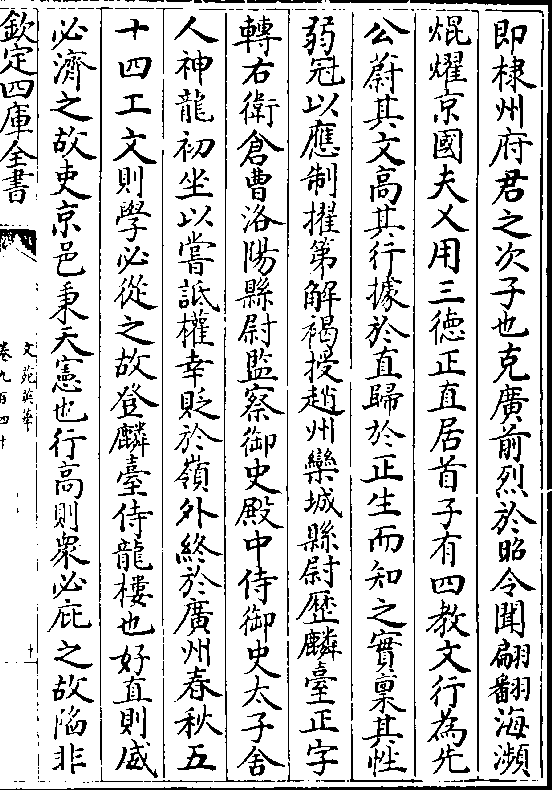 即棣州府君之次子也克廣前烈於昭令聞翩翻海瀕
焜燿京國夫乂用三徳正直居首子有四教文行為先
公蔚其文高其行據於直歸於正生而知之實稟其性
弱冠以應制擢第解褐授趙州欒城縣尉歴麟臺正字
轉右衛倉曹洛陽縣尉監察御史殿中侍御史太子舍
人神龍初坐以嘗詆權幸貶於嶺外終於廣州春秋五
十四工文則學必從之故登麟臺侍龍樓也好直則威
必濟之故吏京邑秉天憲也行高則衆必庇之故陷非
欽定四庫全書
文苑英華
卷九百四十